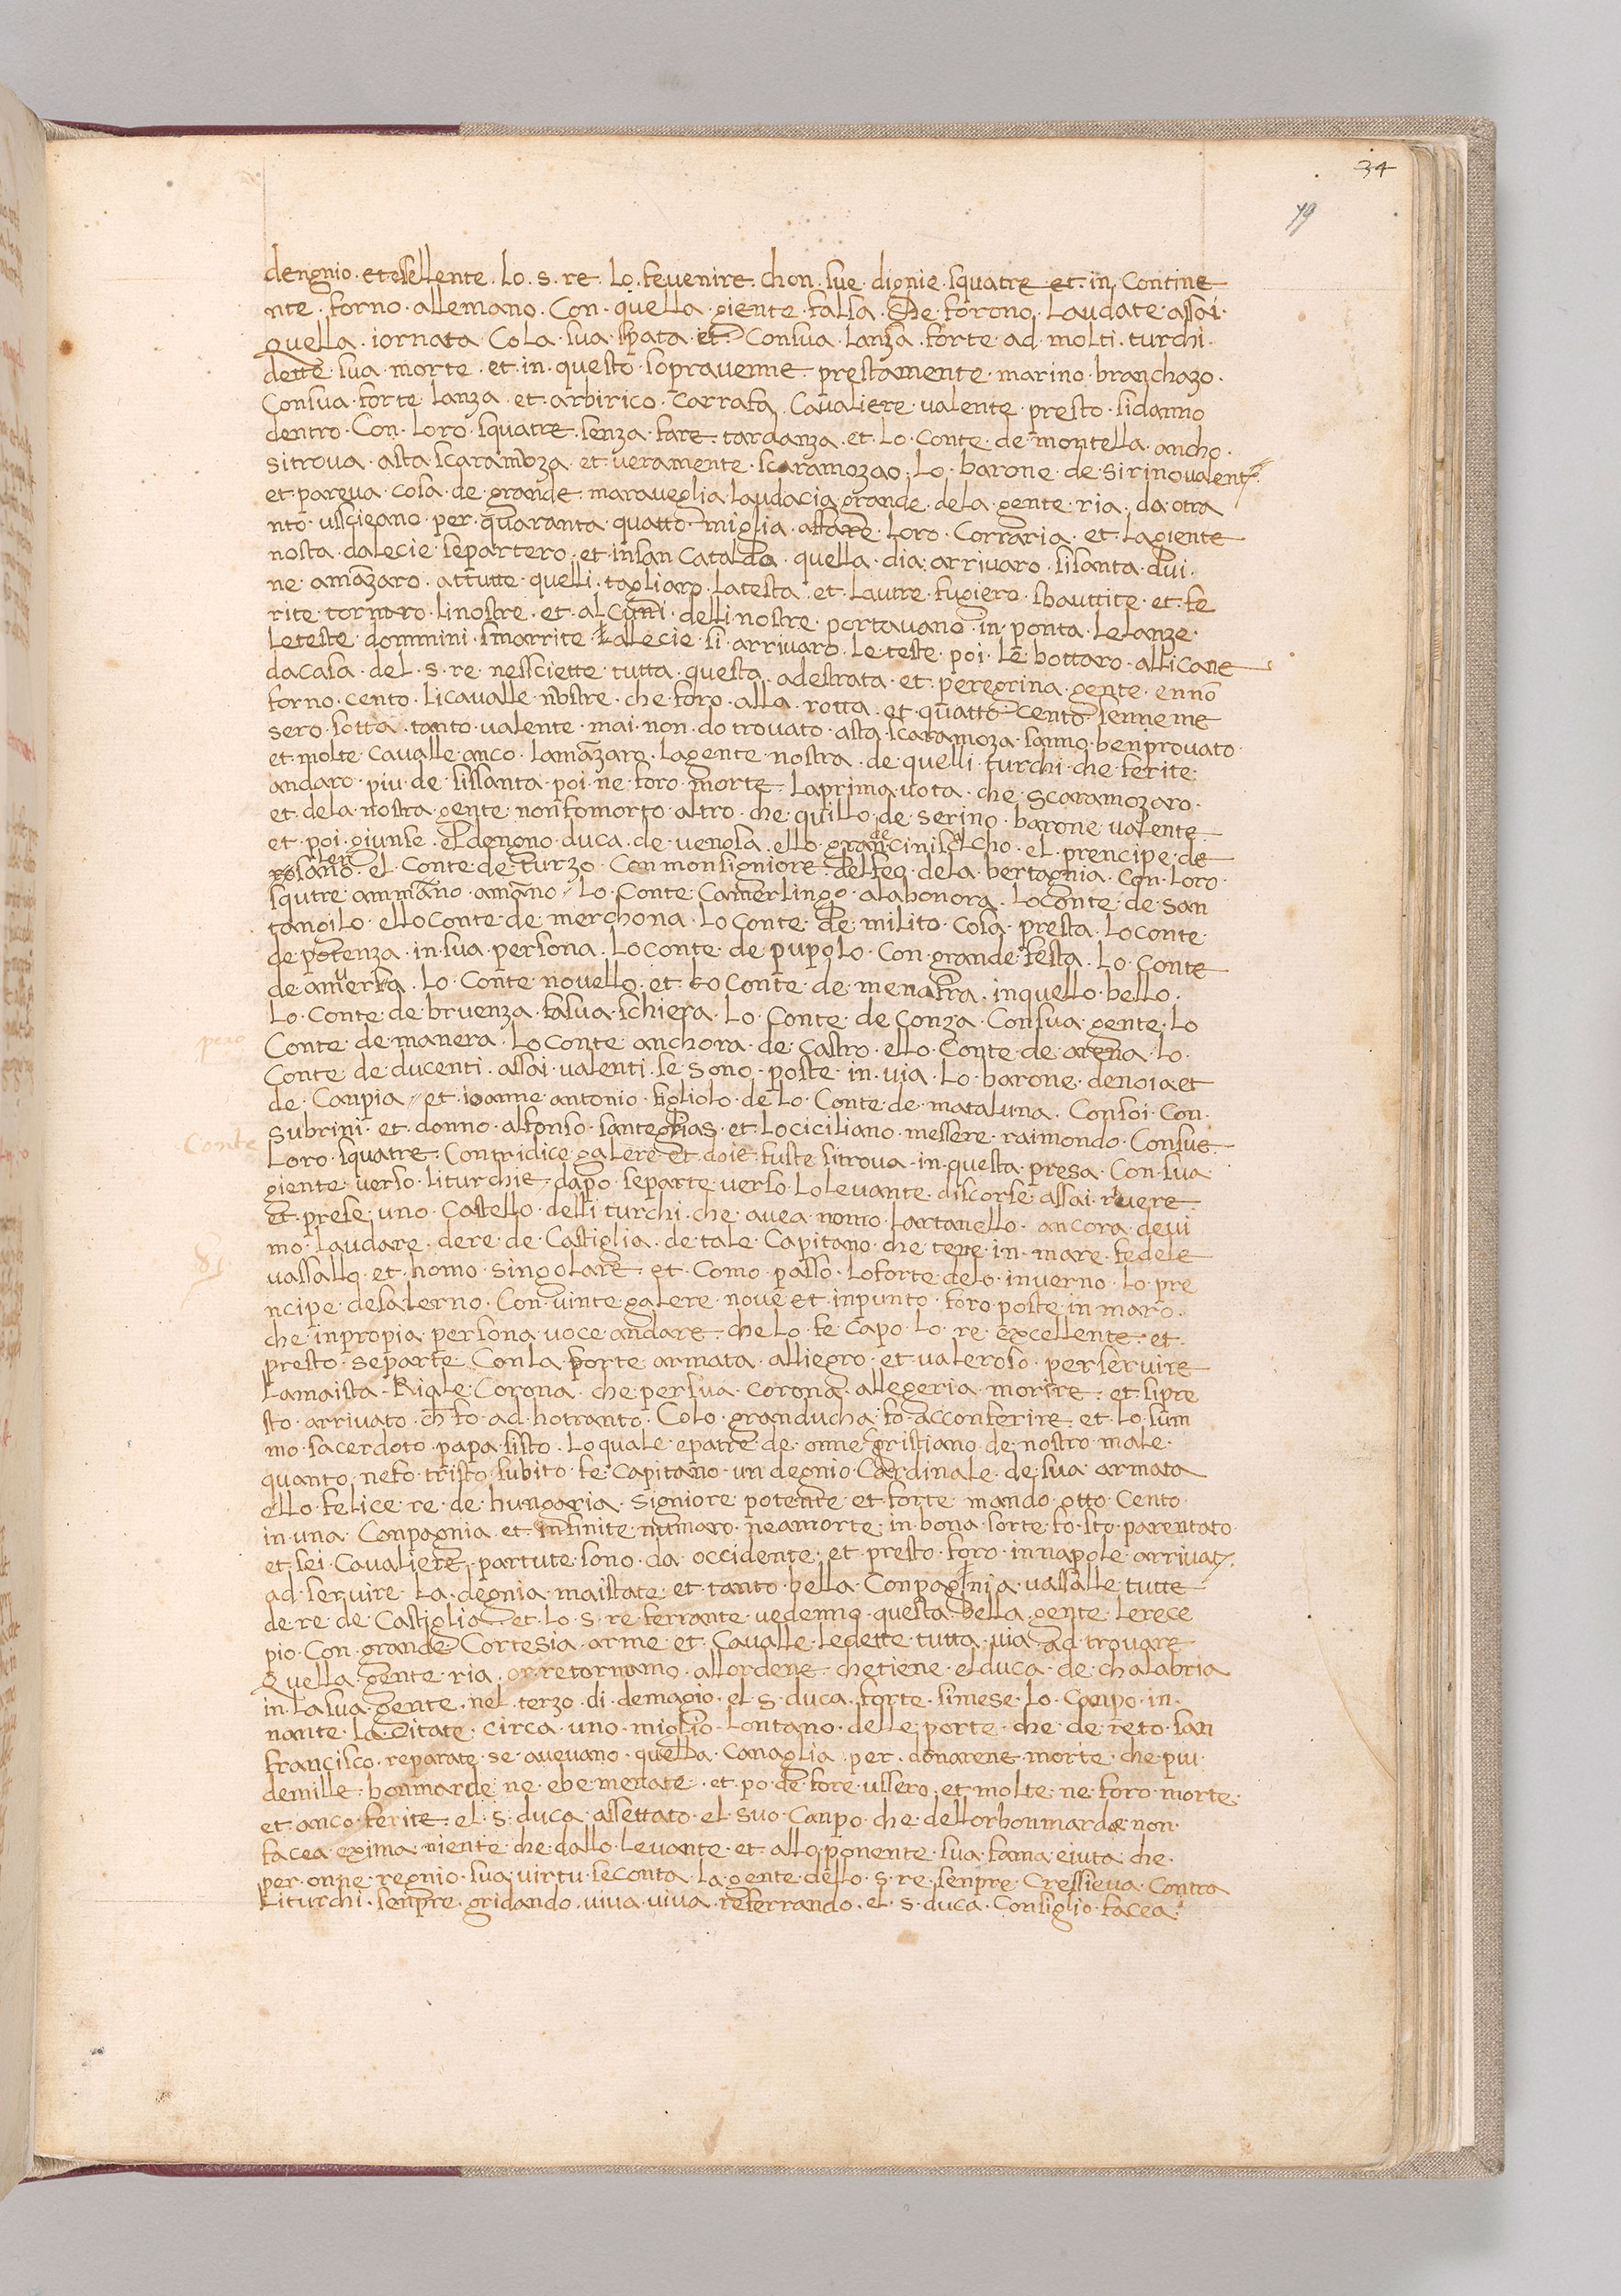 34
79
dengnio · et essellente · lo · s · re · lo · fe venire · chon · sue · dignie · squatre et · in · Contine
nte · forno · allemano · Con · quella · giente · falsa · che · forono · laudate · assai ·
quella · iornata · Cola · sua · spata · et · Con sua · lanza · forte · ad · molti · turchi ·
dette · sua · morte · et · in · questo · sopravenne · prestamente · marino · branchazo ·
Con sua · forte · lanza · et · arbirico · Carrafa · Cavaliere · valente · presto · sidanno
dentro · Con · loro · squatre · senza · fare · tardanza · et · lo · Conte · de · montella · ancho ·
sitrova · asta · scaramoza · et · veramente · scaramozao · lo · barone · de · sirino valente
et · pareva · cosa · de · grande · maraveglia · laudacia · grande · dela · gente · ria · da · otra
nto · usscieano · per · quaranta · quatto · miglia · affare · loro · Corraria · et · lagiente
nosta · dalecie · separtero · et · in san Cataldo · quella · dia · arrivaro · sisanta · dui ·
ne · amazaro · attutte · quelli · tagliaro · latesta · et · lautre · fugiero · sbauttite · et · fe
rite · tornaro · linostre · et · alcuni · delli nostre · portavano · in · ponta · lelanze ·
leteste · dommini · smarrite · Lallecie · si · arrivaro · le teste · poi · le · bottaro · alli cane
dacasa · del · s · re · nessciette · tutta · questa · adestrata · et · peregrina · gente · enno
forno · cento · li cavalle · nostre · che · foro · alla · rotta · et · quatto · cento · senneme
sero · sotta · tanto · valente · mai · non · do trovato · asta · scaramoza · sanno · benprovato ·
et · molte · cavalle · anco · lamazaro · lagente · nostra · de · quelli · turchi · che · ferite ·
andaro · piu · de · sissanta · poi · ne · foro · morte · laprima · vota · che · scaramozaro ·
et · dela · nostra · gente · non fo morto · altro · che · quillo · de · serino · barone · valente
et · poi · giunse · el dengno · duca · de · venosa · ello · grande · sinisalcho · el · prencipe · de
salerno · el · Conte de · turzo · Con monsigniore · delfeo · dela · bertagnia · Con · loro ·
squtre · ammano · amano · lo · Conte · Camerlingo · alabonora · lo conte · de · san
tangilo · ello conte · de · merchona · lo conte · de · milito · cosa · presta · lo conte ·
de potenza · in sua · persona · lo conte · de · pupolo · con · grande · festa · lo · conte
de amuersa · lo · Conte · novello · et · lo conte · de · menafra · inquello · bello ·
lo · Conte · de bruenza · fasua · schiera · lo · Conte · de · Conza · Con sua · gente · lo
Conte · de · manera · lo conte · anchora · de · castro · ello · Conte · de · arena · lo ·
Conte · de · ducenti · assai · valenti · se · sono · poste · in · via · lo · barone · denoia et
de · Canpia · et · ioanne · antonio · figliolo · de lo · Conte · de · mataluna · Con soi · Con ·
pero
subrini · et · donno · alfonso · santeglias · et · lo ciciliano · messere · raimondo · Con sue
Conte
loro · squatre · Contridice galere et · doie · fuste · sitrova · in · questa · presa · Con · sua
giente · verso · liturchie · dapo · separte · verso · lo levante · discorse · assai · rivere
et · prese · uno · Castello · delli · turchi · che · avea · nomo · lartanello · ancora · devi
mo · laudare · dere · de · Castiglia · de · tale · Capitano · che · tene · in · mare · fedele
vassallo · et · homo · singolare · et · Como · passo · lo forte · delo · inverno · lo · pre
ncipe · desalerno · Con · vinte · galere · nove · et · inpunto · foro · poste · in · maro ·
che · inpropia · persona · voce · andare · che lo · fe · Capo · lo · re · excellente · et ·
presto · separte · Con la · forte · armata · alliegro · et · valeroso · per servire
lamaista · Riale · Corona · che · per sua · corona · allegeria · morire · et · sipre
sto · arrivato · che · fo · ad · hotranto · Colo · granducha · fo · acconferire · et · lo · sum
mo · sacerdoto · papa · sisto · lo quale · epatre · de · onne cristiano · de · nostro · male ·
quanto · nefo · tristo · subito · fe · Capitano · un degnio · Cardinale · de · sua · armata
ello · felice · re · de · hungaria · signiore · potente · et · forte · mando · otto · cento ·
in · una · Conpagnia · et · infinite nummaro · neamorte · in · bona · sorte · fo · sto · parentato ·
et · sei · Cavaliere · partute · sono · da · occidente · et · presto · foro · in napole · arrivate
ad · servire · la · degnia · maistate · et · tanto · bella · Conpagnia · vassalle · tutte
de · re · de · Castiglia · et · lo · s · re · ferrante · vedenno · questa · bella · gente · lerece
pio · Con · grande · Cortesia · arme · et · Cavalle · ledette · tutta · via · ad · trovare
quella · gente · ria · or · retornamo · allordene · chetiene · elduca · de · chalabria
in · la sua · gente · nel · terzo · di · demagio · el · s · duca · forte · simese · lo · Canpo · in ·
nante · la · citate · circa · uno · miglio · lontano · delle · porte · che · de · reto · san
francisco · reparate · se · avevano · quella · Canaglia · per · donarene · morte · che · piu ·
demille · bonmarde · ne · ebe · menate · et · po · de · fore · ussero · et · molte · ne · foro · morte ·
et · anco · ferite · el · s · duca · assettato · el · suo · Canpo · che · dellorbonmarde · non ·
facea · exima · niente · che · dallo · levante · et · allo ponente · sua · fama · eiuta · che ·
per · onne · regnio · sua · virtu · seconta · la · gente · dello · s · re · senpre · Cressieva · Contra
liturchi · senpre · gridando · viva · viva · referrando · el · s · duca · Consiglio · facea ·